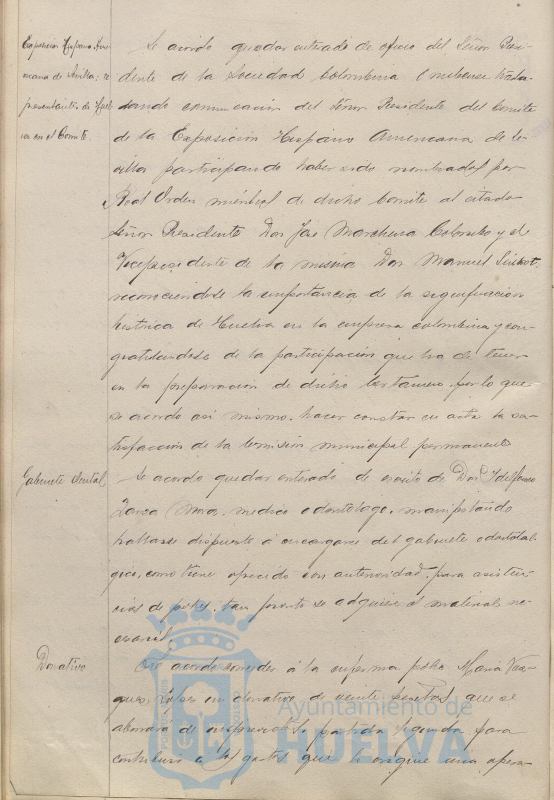 Exposición Hispano Ame-
ricana de Sevilla: re
presentantes de Huel
va en el Comité.
Se acordó quedar enterado de oficio del Señor Presi-
dente de la Sociedad Colombina Onubense trasla-
dando comunicación del Señor Presidente del Comité
de la Exposición Hispano Americana de Se-
villa participando haber sido nombrados por
Real Orden miembros de dicho Comité al citado
Señor Presidente Don José Marchena Colombo y el
Vicepresidente de la misma Don Manuel Siurot,
reconociéndole la importancia de la significación
histórica de Huelva en la empresa colombina y con-
gratulándose de la participación que ha de tener
en la preparación de dicho Certamen, por lo que
se acordó así mismo, hacer constar en acta la sa-
tisfacción de la Comisión municipal permanente
Gabinete dental
Se acordó quedar enterado de escrito de Don Ildefonso
Mora, medico odontólogo, manifestando
hallarse dispuesto á encargarse del gabinete odontoló-
gico, como tiene ofrecido con anterioridad, para asisten-
cias de pobres, tan pronto se adquiera el material ne-
cesario.
Donativo
Se acordó conceder á la enferma pobre María Vaz-
quez López un donativo de veinte pesetas, que se
abonará de imprevistos partida segunda para
contribuir a los gastos que le origine una opera-
Ayuntamiento de
HUELVA